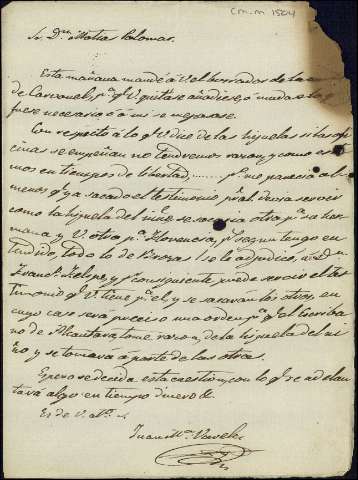 CM.m 1504
Sr. Dn. Matias Palomar.
Esta mañana mandé á V. el borrador de la
de Carvonel, pa. qe. V. quitase añadiese, ó mudase lo q
fuese necesario ó á mi se
Con respecto á lo qe. V. dice de las hijuelas si las ofi
cinas se empeñan no tendremos razon, y como esta
mos en tiempos de libertad, ....... pr. me parecia al
menos qe. ya sacado el testimonio pral. deviaservir
como la hijuela del niño, se sacaria otra pa. su her
mana y V. otra pa. pr. segun tengo en
tendido, todo lo de se lo adjudicó, á Dn.
Franco. Felipe, y pr. consiguiente puede servir el tes
timonio qe. V. tiene pa. el, y se sacarán los otros, en
cuyo caso será preciso una orden pa. qe. el Escriba
no de Alcantara, tome razon, de la hijuela del ni
ño y se tomará á parte de las otras.
Espero se decida esta cuestion, con lo qe. se adelan
tará algo en tiempo dinero &.
Es de V. afto. s.
Juan Ma.